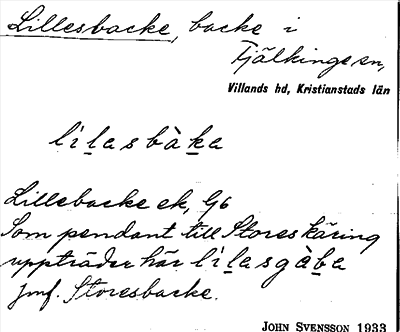 Lillesbacke, backe i
Fjälkinge sn,
Villands hd, Kristianstads län
lìlasbàka
Lillebacke ek, G6
Som pendant till Stores käring
uppträder här lìlasgàba
Jmf. Storesbacke.
JOHN SVENSSON 1933